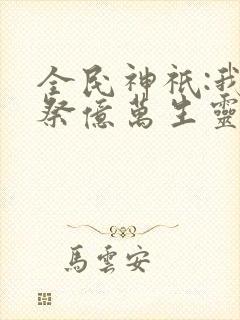 全民神祇:我
祭億萬生靈
馬雲安